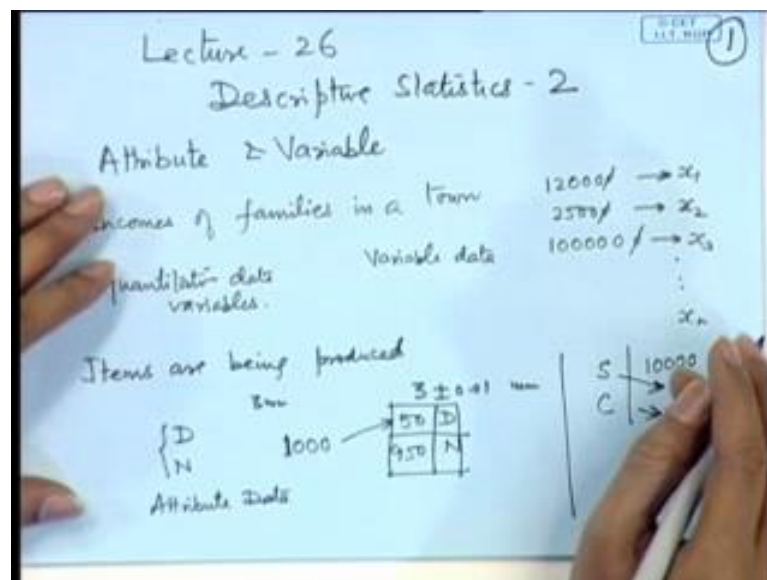 Lecture - 26
1
Descriptive Statistics - 2
Attribute & Variable
incomes of families in a Town
12000/ → x₁
2500/ → x₂
100000/ → x₃
⋮
xₙ
Variable data
quantitative data
variables.
Items are being produced
3 mm
3 ± 0.01 mm
D
N
1000 →
50 | D
950 | N
Attribute Data
S 10000
C